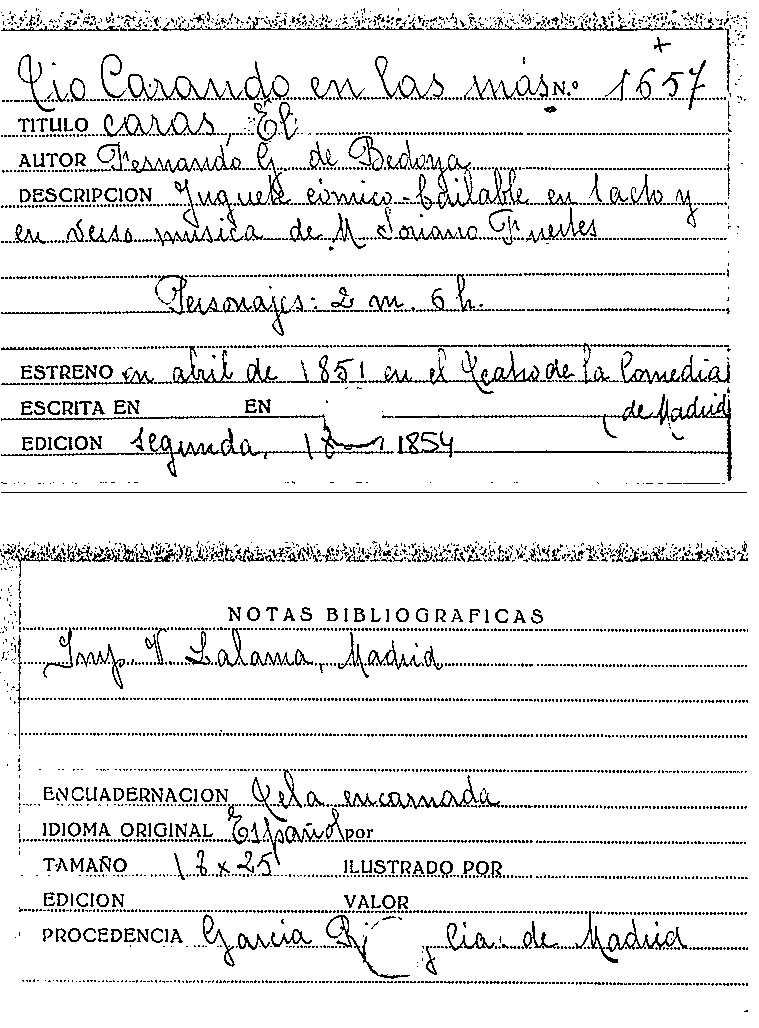 +
Tio Carando en las más N.º 1657
TITULO caras, El
AUTOR Fernando G. de Bedoya
DESCRIPCION Juguete cómico-bailable en 1 acto y
en verso música de M. Soriano Fuertes
Personajes: 2 m. 6 h.
ESTRENO en abril de 1851 en el Teatro de la Comedia
ESCRITA EN EN , de Madrid
EDICION segunda, 1854
NOTAS BIBLIOGRAFICAS
Imp. V. Lalama, Madrid
ENCUADERNACION Tela encarnada
IDIOMA ORIGINAL Español por
TAMAÑO 18 x 25 ILUSTRADO POR
EDICION VALOR
PROCEDENCIA Garcia y Cia. de Madrid